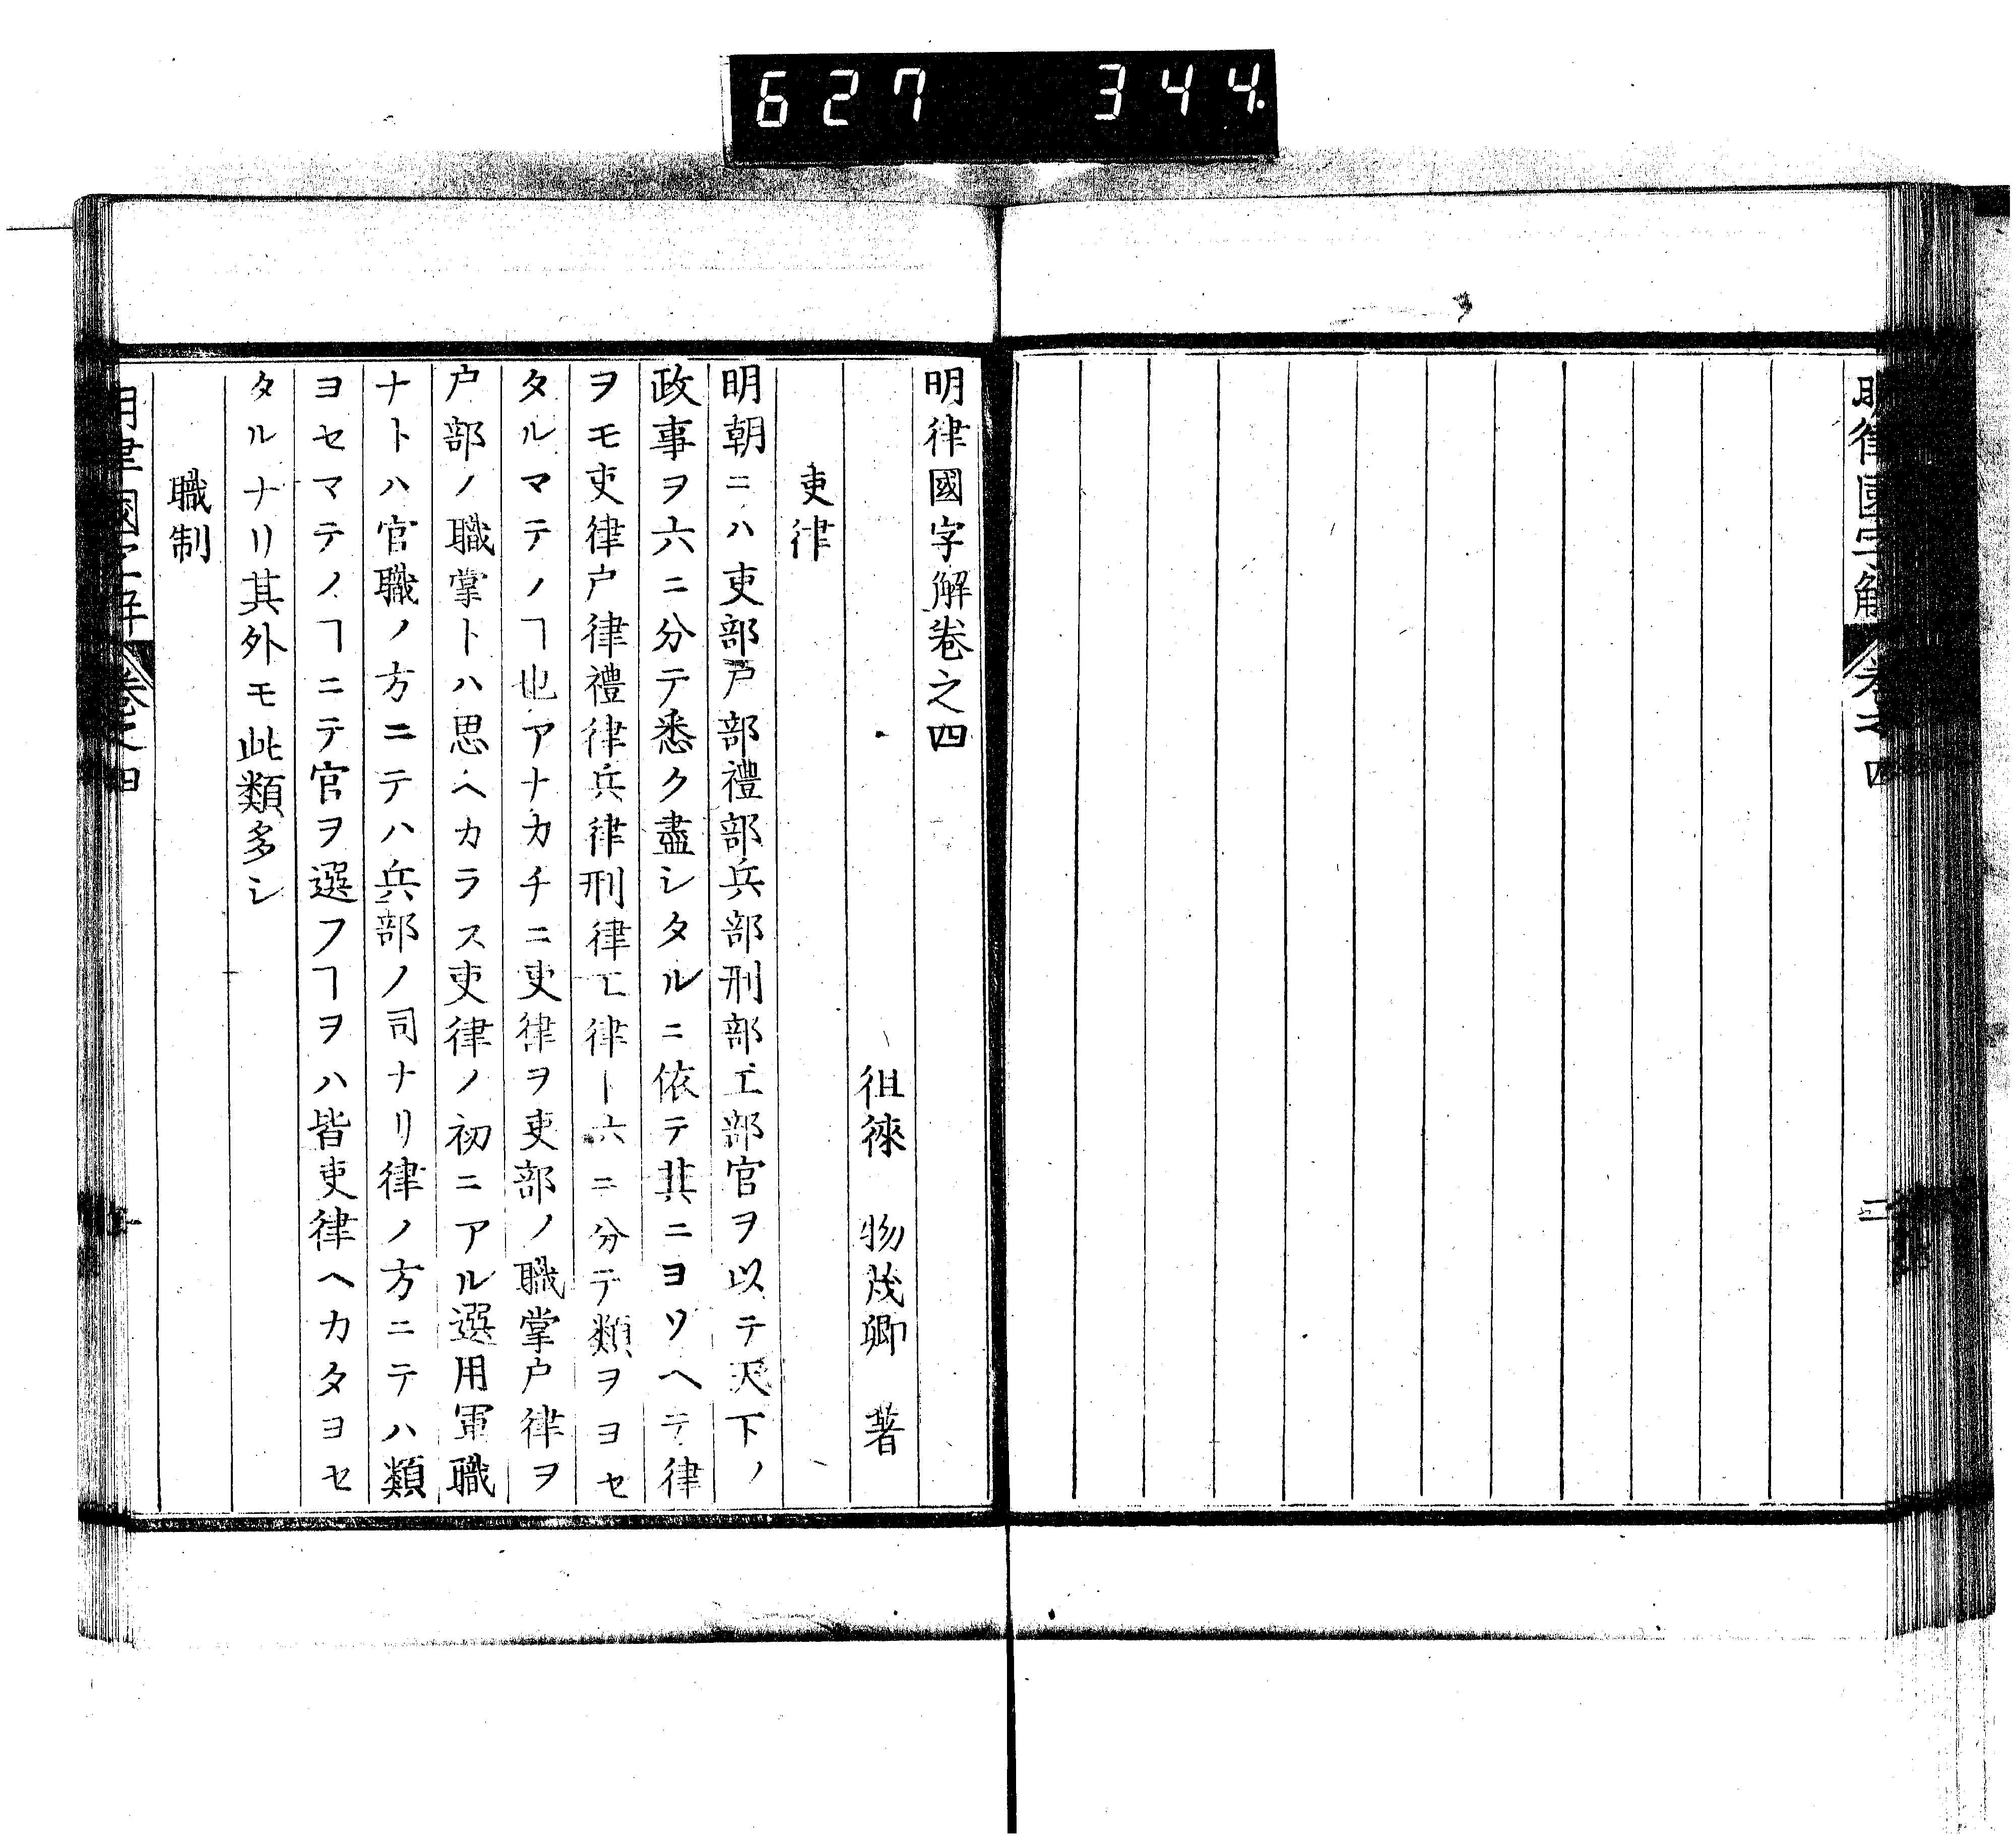 627 344.
明律國字解
卷之四
二
明律國字解卷之四
徂徠 物茂卿 著
吏律
明朝ニハ吏部戸部禮部兵部刑部工部官ヲ以テ天下ノ
政事ヲ六ニ分テ悉ク盡シタルニ依テ其ニヨリヘテ律
ヲモ吏律戸律禮律兵律刑律工律ト六ニ分テ類ヲヨセ
タルマテノヿ也アナカチニ吏律ヲ吏部ノ職掌戸律ヲ
戸部ノ職掌トハ思ヘカラス吏律ノ初ニアル選用軍職
ナトハ官職ノ方ニテハ兵部ノ司ナリ律ノ方ニテハ類
ヨセマテノヿニテ官ヲ選フヿヲハ皆吏律ヘカタヨセ
タルナリ其外モ此類多シ
職制
明律國字解
卷之四